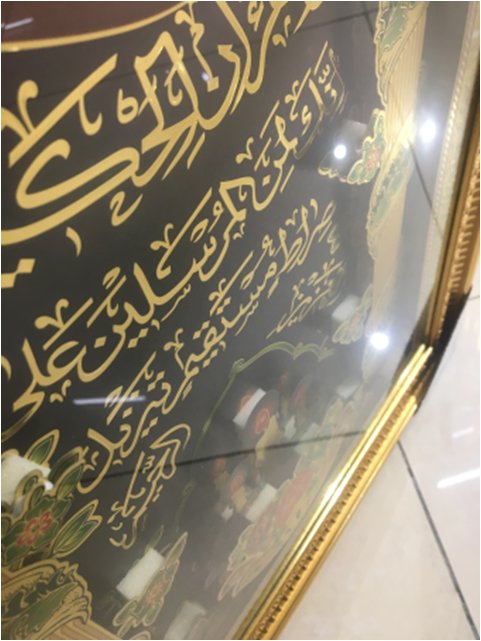 القرآن الحكيم
إنك لمن المرسلين على
صراط مستقيم تنزيل
العزيز